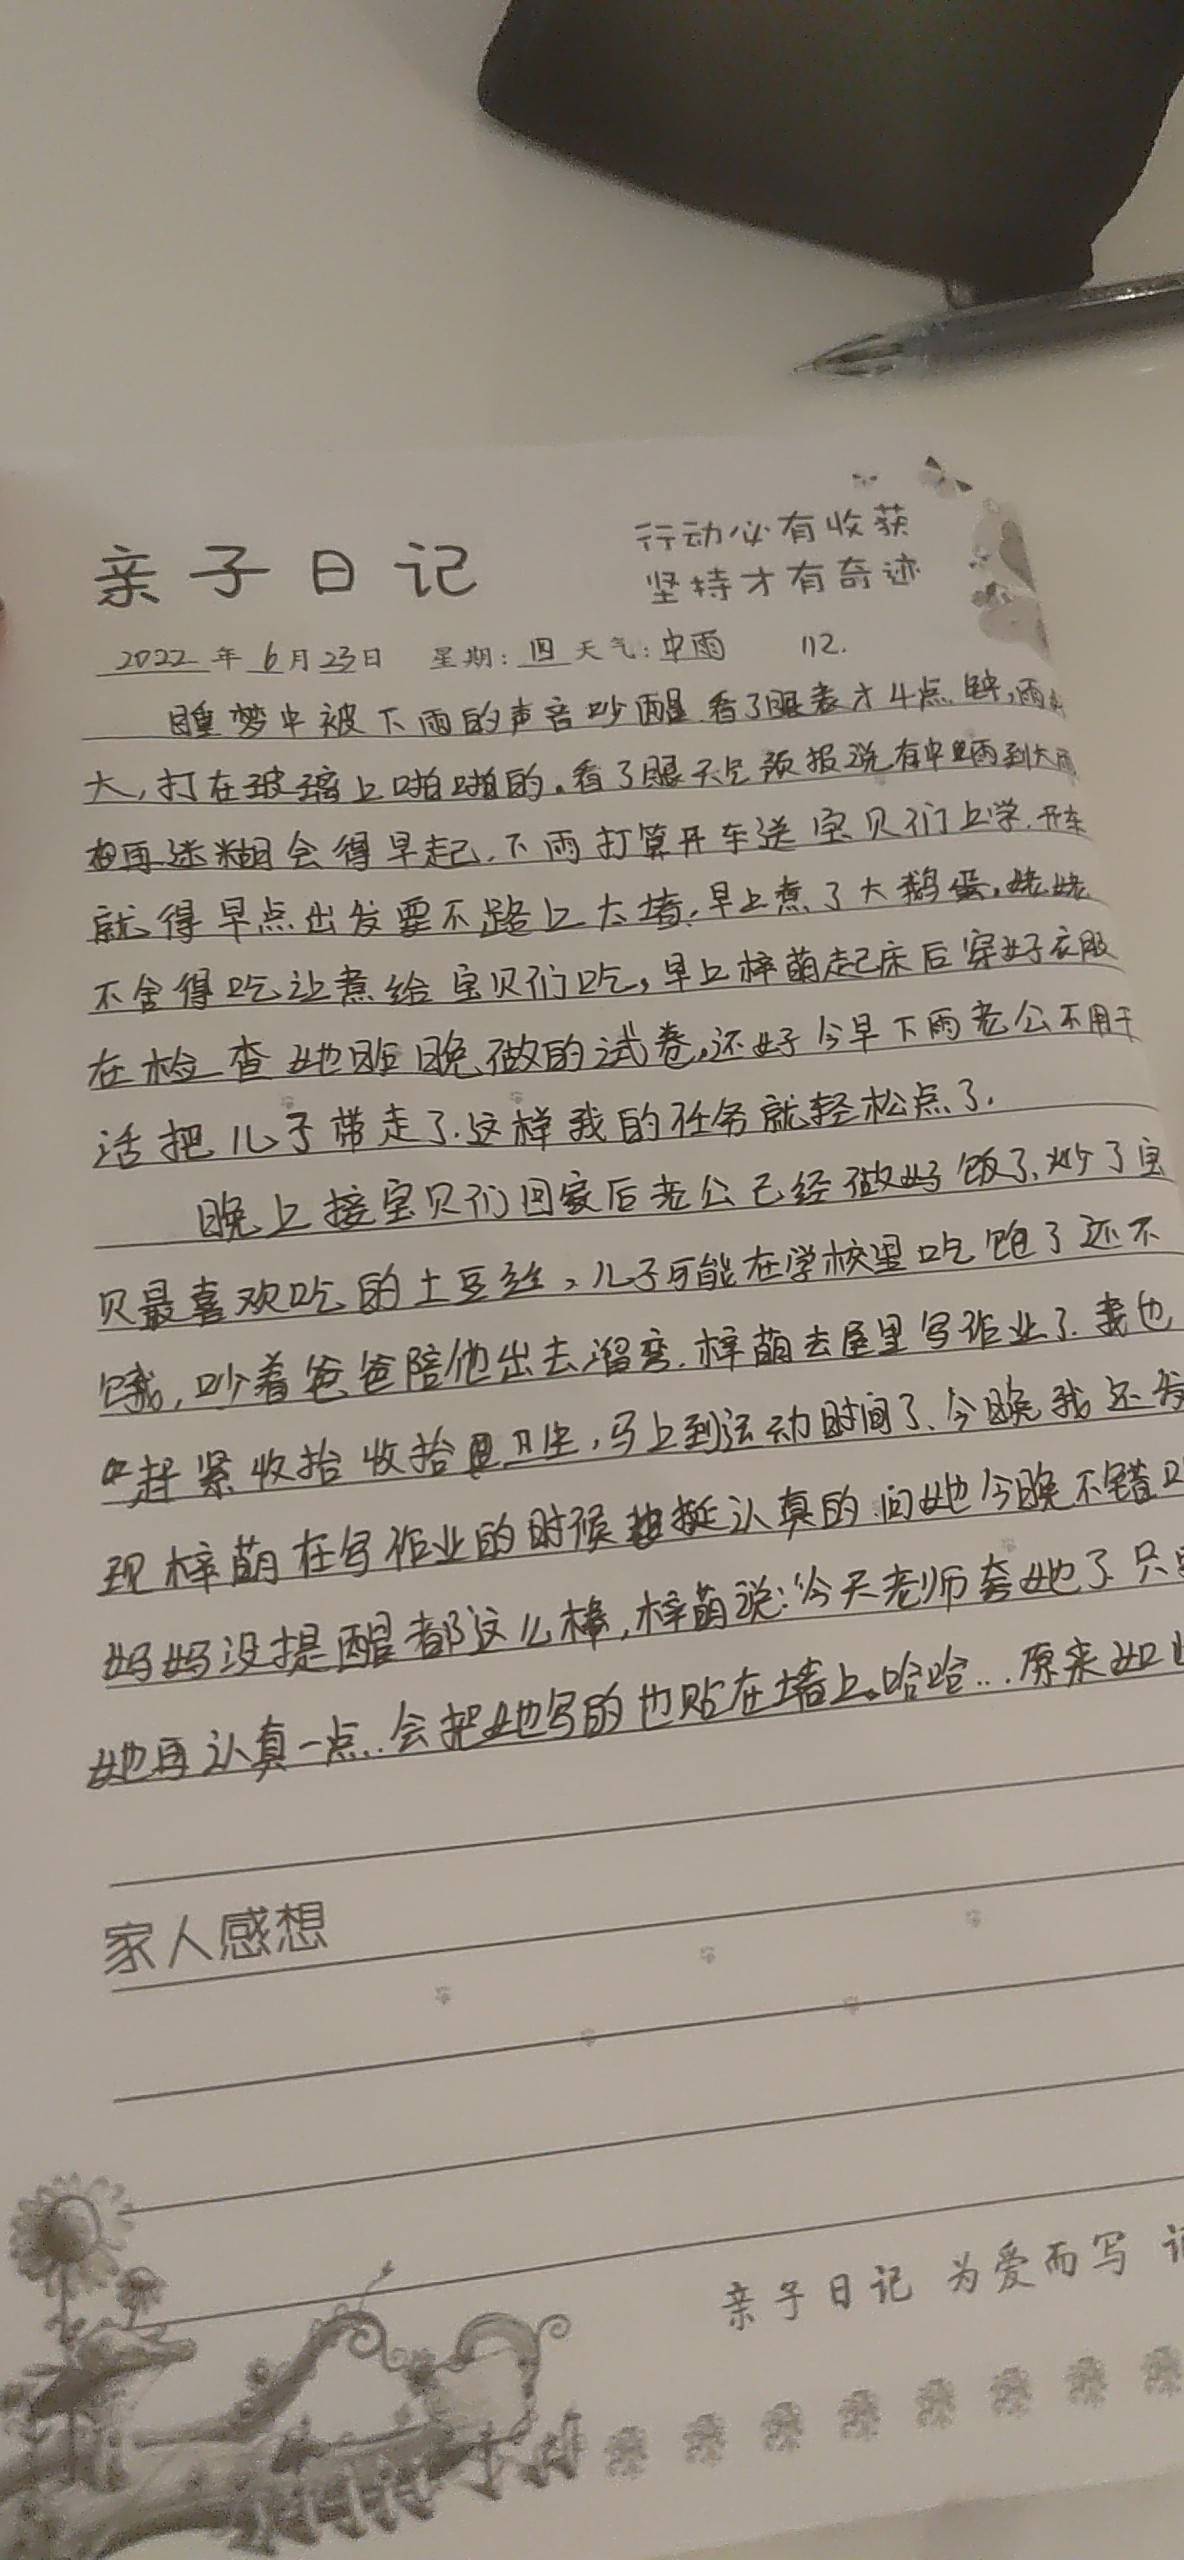 亲子日记
行动必有收获
坚持才有奇迹
2022年6月23日 星期:四 天气:中雨 112.
睡梦中被下雨的声音吵醒.看了眼表才4点钟,雨
大,打在玻璃上啪啪的。看了眼天气预报说有中雨到大雨
再迷糊会得早起.下雨打算开车送宝贝们上学.开车
就得早点出发要不路上太堵,早上煮了大鹅蛋,姥姥
不舍得吃让煮给宝贝们吃,早上梓萌起床后穿好衣服
在检查她昨晚做的试卷,还好今早下雨老公不用干
活把儿子带走了.这样我的任务就轻松点了.
晚上接宝贝们回家后老公已经做好饭了,炒了宝
贝最喜欢吃的土豆丝,儿子可能在学校里吃饱了还不
饿,吵着爸爸陪他出去溜弯.梓萌去屋里写作业了.我也
赶紧收拾收拾卫生,马上到运动时间了.今晚我还发
现梓萌在写作业的时候挺认真的.问她今晚不错
妈妈没提醒都这么棒,梓萌说:今天老师夸她了.只要
她再认真一点..会把她写的也贴在墙上。哈哈...原来如此
家人感想
亲子日记 为爱而写